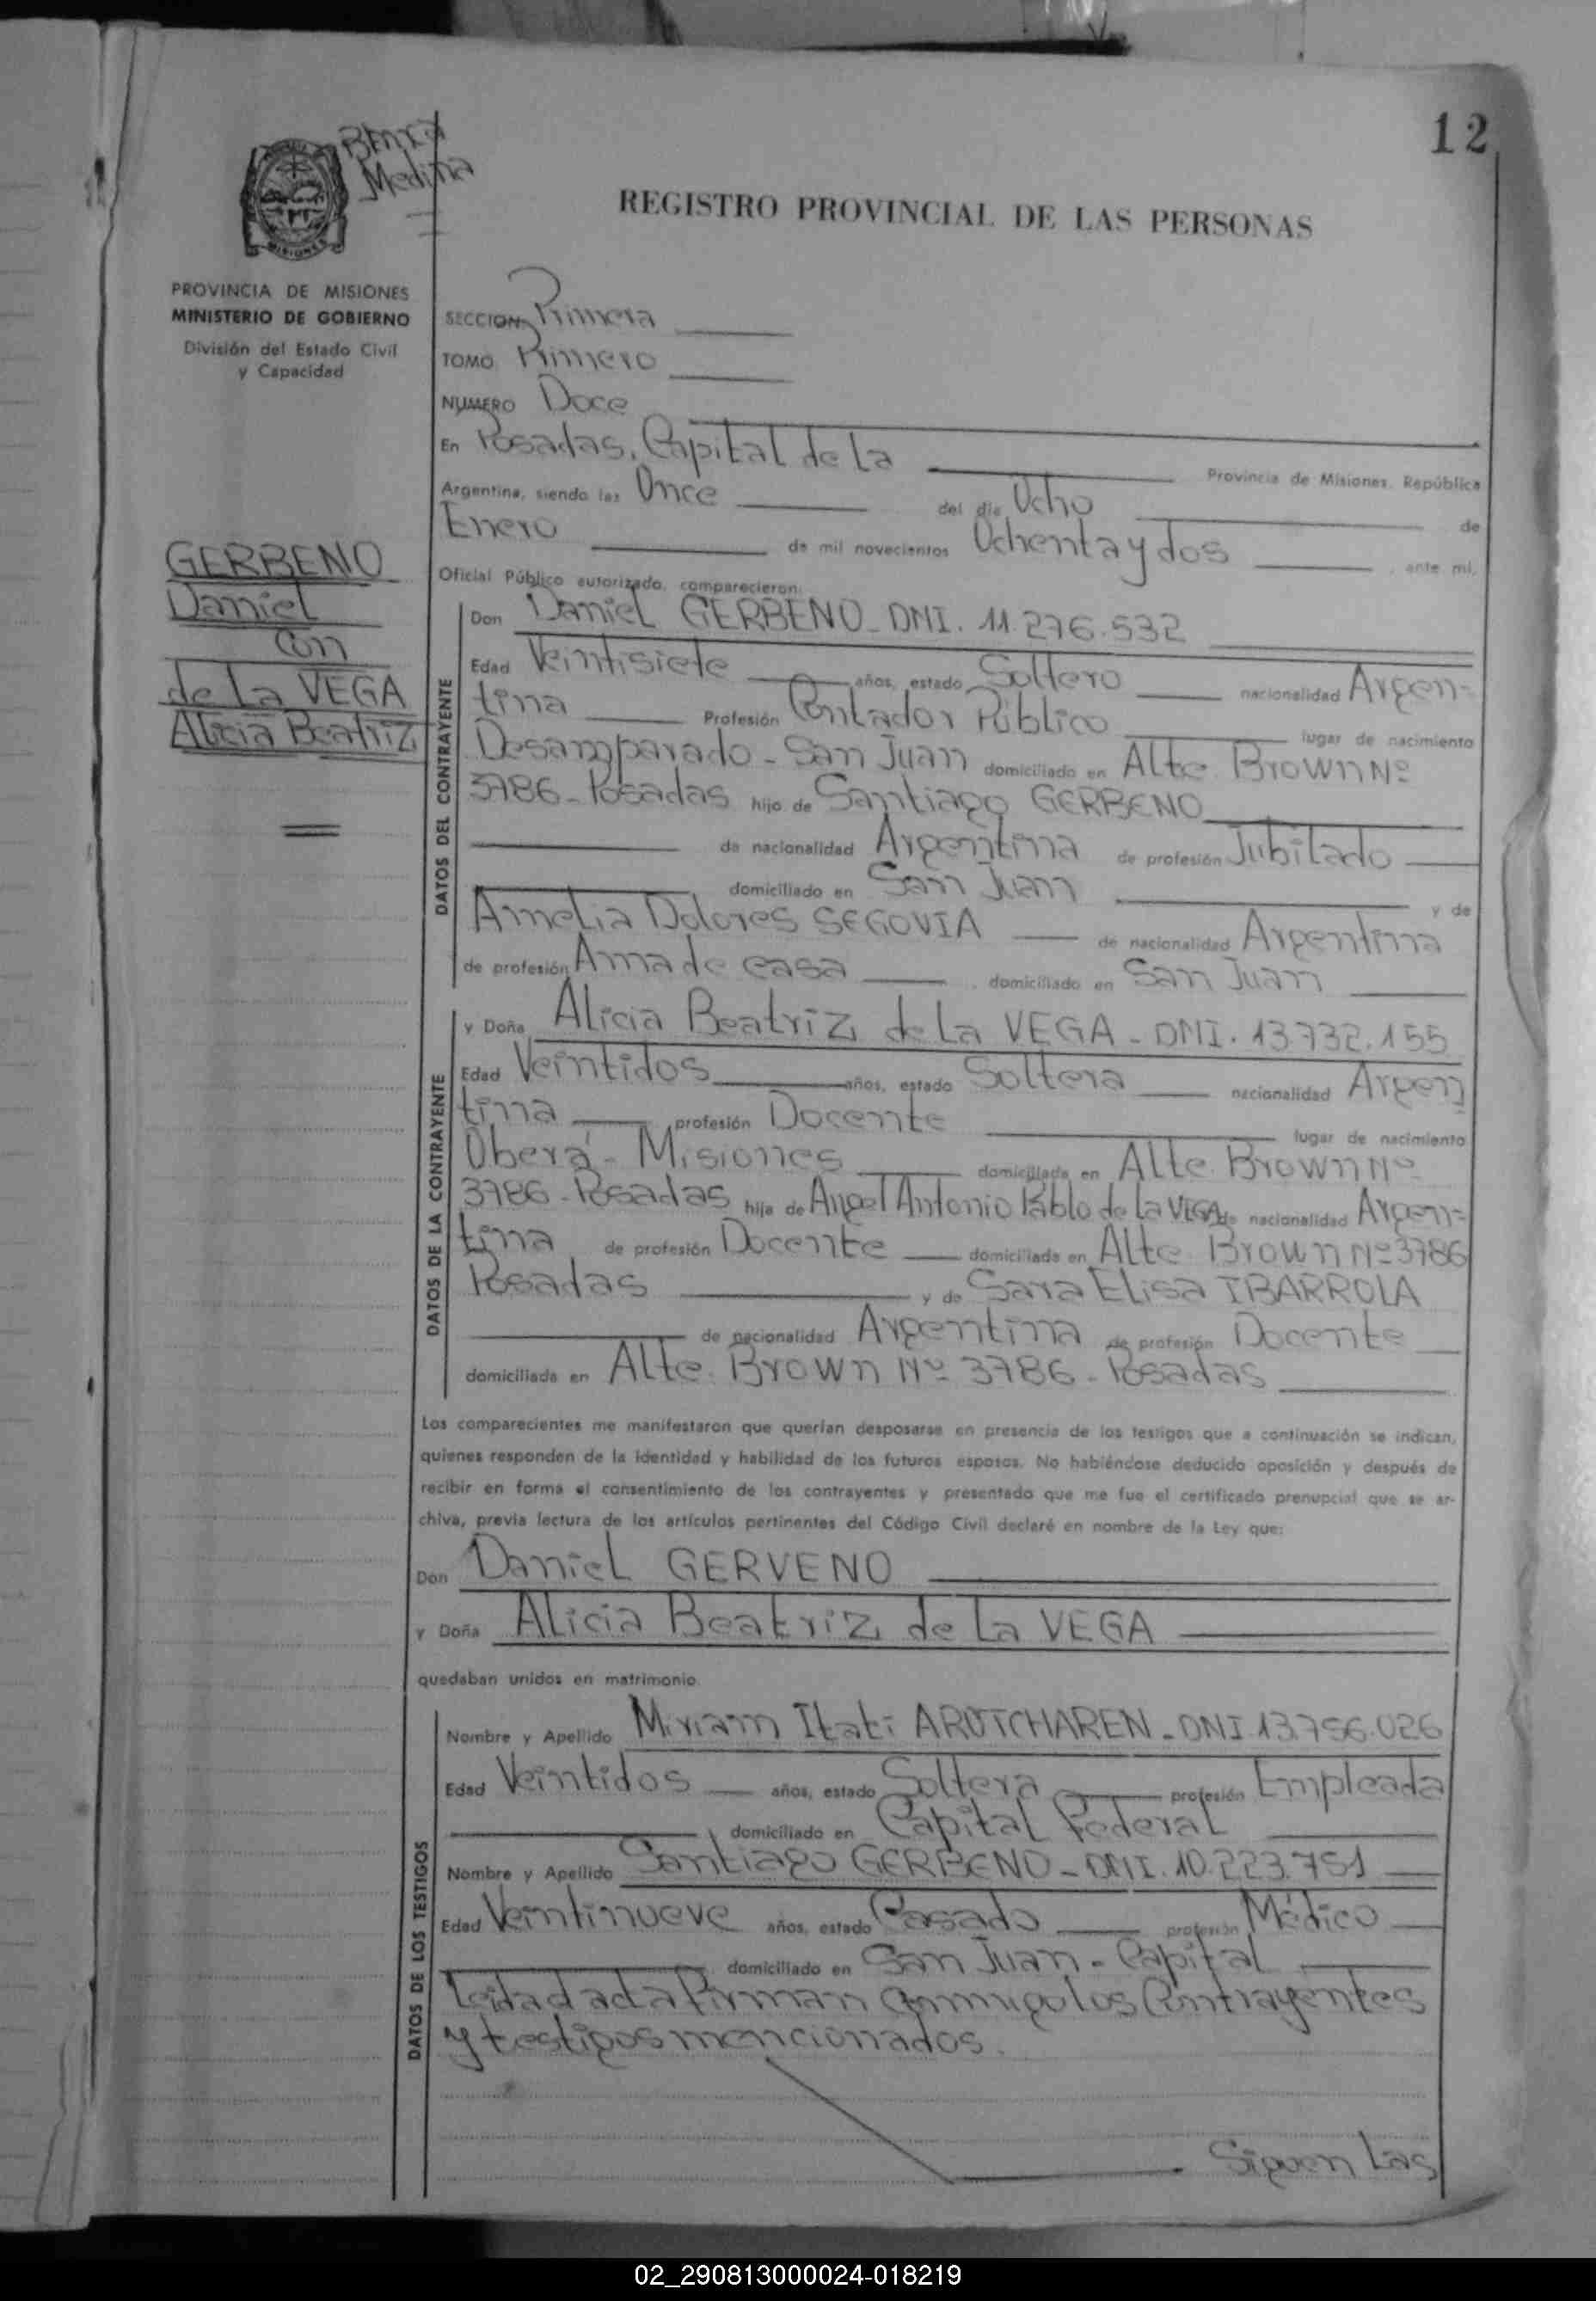 12
Medina
MISIONES
REGISTRO PROVINCIAL DE LAS PERSONAS
PROVINCIA DE MISIONES
MINISTERIO DE GOBIERNO
División del Estado Civil
y Capacidad
GERBENO
Daniel
con
de La VEGA
Alicia Beatriz
SECCION Primera
TOMO Primero
NUMERO Doce
En Posadas, Capital de La Provincia de Misiones, República
Argentina, siendo las Once del día Ocho de
Enero de mil novecientos Ochenta y dos, ante mi,
Oficial Público autorizado, comparecieron:
DATOS DEL CONTRAYENTE
Don Daniel GERBENO - DNI. 11.276.532
Edad Veintisiete años, estado Soltero nacionalidad Argen=
tina Profesión Contador Público lugar de nacimiento
Desamparado - San Juan domiciliado en Alte. Brown Nº
3786 - Posadas hijo de Santiago GERBENO
de nacionalidad Argentina de profesión Jubilado
domiciliado en San Juan y de
Amelia Dolores SEGOVIA de nacionalidad Argentina
de profesión Ama de casa domiciliado en San Juan
DATOS DE LA CONTRAYENTE
y Doña Alicia Beatriz de La VEGA - DNI. 13.732.155
Edad Veintidos años, estado Soltera nacionalidad Argen
tina profesión Docente lugar de nacimiento
Oberá - Misiones domiciliada en Alte. Brown Nº
3786 - Posadas hija de Angel Antonio Pablo de La VEGA de nacionalidad Argen=
tina de profesión Docente domiciliado en Alte. Brown Nº 3786
Posadas y de Sara Elisa IBARROLA
de nacionalidad Argentina de profesión Docente
domiciliada en Alte. Brown Nº 3786 - Posadas
Los comparecientes me manifestaron que querían desposarse en presencia de los testigos que a continuación se indican,
quienes responden de la identidad y habilidad de los futuros esposos. No habiéndose deducido oposición y después de
recibir en forma el consentimiento de los contrayentes y presentado que me fue el certificado prenupcial que se ar-
chiva, previa lectura de los artículos pertinentes del Código Civil declaré en nombre de la Ley que:
Don Daniel GERVENO
y Doña Alicia Beatriz de La VEGA
quedaban unidos en matrimonio.
DATOS DE LOS TESTIGOS
Nombre y Apellido Miriam Itati ARUTCHAREN - DNI 13.756.026
Edad Veintidos años, estado Soltera profesión Empleada
domiciliado en Capital Federal
Nombre y Apellido Santiago GERBENO - DNI. 10.223.751
Edad Veintinueve años, estado Casado profesión Médico
domiciliado en San Juan - Capital
Leida el acta firman conmigo los Contrayentes
y testigos mencionados.
Siguen Las
02_290813000024-018219